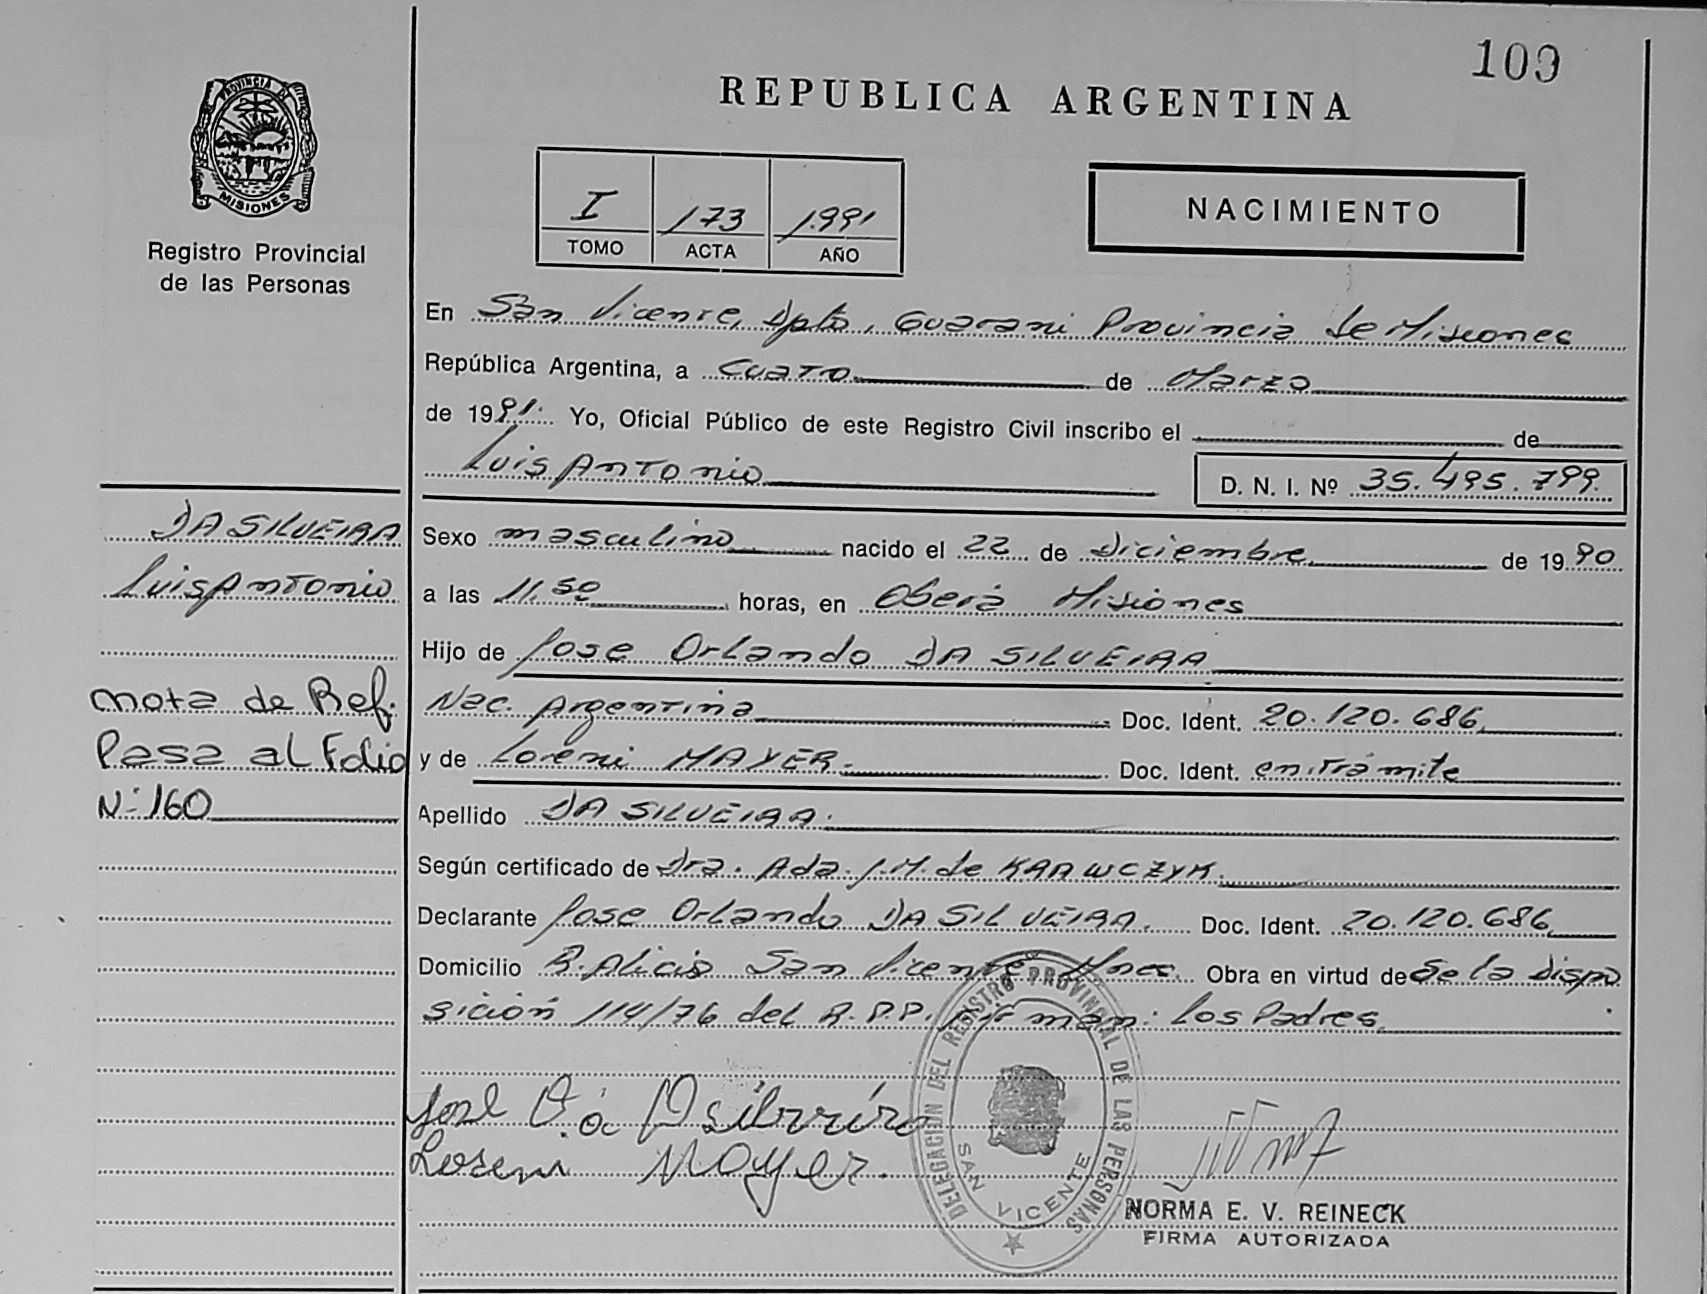 109
REPUBLICA ARGENTINA
PROVINCIA DE
MISIONES
Registro Provincial
de las Personas
I 173 1.991
TOMO ACTA AÑO
NACIMIENTO
En San Vicente, Dpto, Guarani Provincia de Misiones
República Argentina, a Cuatro de Marzo
de 1991. Yo, Oficial Público de este Registro Civil inscribo el de
Luis Antonio D. N. I. Nº 35.495.799.
DA SILVEIRA
Luis Antonio
Sexo masculino nacido el 22 de Diciembre de 1990
a las 11,50 horas, en Oberá Misiones
Hijo de Jose Orlando DA SILVEIRA
Nac. Argentina Doc. Ident. 20.120.686,
y de Loreni MAYER. Doc. Ident. en trámite
Apellido DA SILVEIRA.
nota de Ref.
Pasa al Folio
Nº 160
Según certificado de Dra. Ada J.M. de KRAWCZYK.
Declarante Jose Orlando DA SILVEIRA. Doc. Ident. 20.120.686,
Domicilio B. Alicia San Vicente Mnes. Obra en virtud de de la Dispo
sición 114/76 del R.P.P. Firman: Los Padres
Loreni Mayer.
DELEGACION DEL REGISTRO PROVINCIAL DE LAS PERSONAS
SAN VICENTE
NORMA E. V. REINECK
FIRMA AUTORIZADA